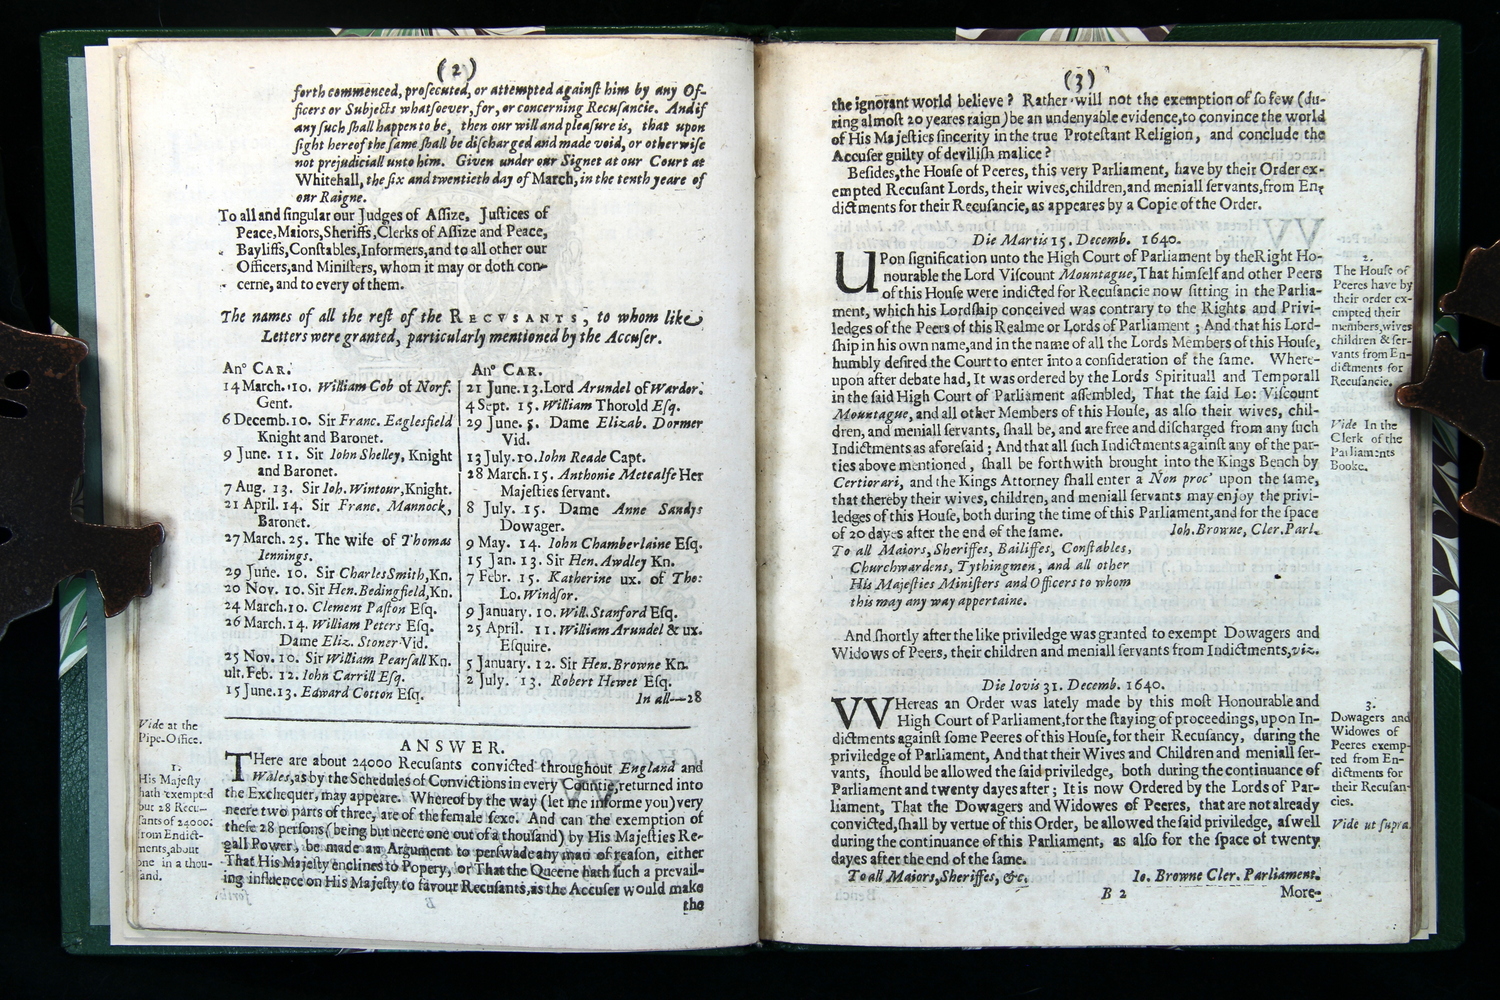 (2)
forth commenced, prosecuted, or attempted against him by any Of-
ficers or Subjects whatsoever, for, or concerning Recusancie. And if
any such shall happen to be, then our will and pleasure is, that upon
sight hereof the same shall be discharged and made void, or otherwise
not prejudiciall unto him. Given under our Signet at our Court at
Whitehall, the six and twentieth day of March, in the tenth yeare of
our Raigne.
To all and singular our Judges of Assize, Justices of
Peace, Maiors, Sheriffs, Clerks of Assize and Peace,
Bayliffs, Constables, Informers, and to all other our
Officers, and Ministers, whom it may or doth con-
cerne, and to every of them.
The names of all the rest of the RECVSANTS, to whom like
Letters were granted, particularly mentioned by the Accuser.
Anº CAR.
14 March. 10. William Cob of Norf.
Gent.
6 Decemb. 10. Sir Franc. Eaglesfield
Knight and Baronet.
9 June. 11. Sir Iohn Shelley, Knight
and Baronet.
7 Aug. 13. Sir Ioh. Wintour, Knight.
21 April. 14. Sir Franc. Mannock,
Baronet.
27 March. 25. The wife of Thomas
Iennings.
29 June. 10. Sir Charles Smith, Kn.
20 Nov. 10. Sir Hen. Bedingfield, Kn.
24 March. 10. Clement Paston Esq.
26 March. 14. William Peters Esq.
Dame Eliz. Stoner Vid.
25 Nov. 10. Sir William Pearsall Kn.
ult. Feb. 12. Iohn Carrill Esq.
15 June. 13. Edward Cotton Esq.
Anº CAR.
21 June. 13. Lord Arundel of Wardor.
4 Sept. 15. William Thorold Esq.
29 June. 5. Dame Elizab. Dormer
Vid.
13 July. 10. Iohn Reade Capt.
28 March. 15. Anthonie Metcalfe Her
Majesties servant.
8 July. 15. Dame Anne Sandys
Dowager.
9 May. 14. Iohn Chamberlaine Esq.
15 Jan. 13. Sir Hen. Awdley Kn.
7 Febr. 15. Katherine ux. of Tho:
Lo. Windsor.
9 January. 10. Will. Stanford Esq.
25 April. 11. William Arundel & ux.
Esquire.
5 January. 12. Sir Hen. Browne Kn.
2 July. 13. Robert Hewet Esq.
In all—28
Vide at the
Pipe-Office.
1.
His Majesty
hath exempted
but 28 Recu-
sants of 24000:
from Endict-
ments, about
one in a thou-
sand.
ANSWER.
THere are about 24000 Recusants convicted throughout England and
Wales, as by the Schedules of Convictions in every Countie, returned into
the Exchequer, may appeare. Whereof by the way (let me informe you) very
neere two parts of three, are of the female sexe. And can the exemption of
these 28 persons (being but neere one out of a thousand) by His Majesties Re-
gall Power, be made an Argument to perswade any man of reason, either
That His Majesty enclines to Popery, or That the Queene hath such a prevail-
ing influence on His Majesty to favour Recusants, as the Accuser would make
the
(3)
the ignorant world believe? Rather will not the exemption of so few (du-
ring almost 20 yeares raign) be an undenyable evidence, to convince the world
of His Majesties sincerity in the true Protestant Religion, and conclude the
Accuser guilty of devilish malice?
Besides, the House of Peeres, this very Parliament, have by their Order ex-
empted Recusant Lords, their wives, children, and meniall servants, from En-
dictments for their Recusancie, as appeares by a Copie of the Order.
Die Martis 15. Decemb. 1640.
UPon signification unto the High Court of Parliament by the Right Ho-
nourable the Lord Viscount Mountague, That himself and other Peers
of this House were indicted for Recusancie now sitting in the Parlia-
ment, which his Lordship conceived was contrary to the Rights and Privi-
ledges of the Peers of this Realme or Lords of Parliament; And that his Lord-
ship in his own name, and in the name of all the Lords Members of this House,
humbly desired the Court to enter into a consideration of the same. Where-
upon after debate had, It was ordered by the Lords Spirituall and Temporall
in the said High Court of Parliament assembled, That the said Lo: Viscount
Mountague, and all other Members of this House, as also their wives, chil-
dren, and meniall servants, shall be, and are free and discharged from any such
Indictments as aforesaid; And that all such Indictments against any of the par-
ties above mentioned, shall be forthwith brought into the Kings Bench by
Certiorari, and the Kings Attorney shall enter a Non proc' upon the same,
that thereby their wives, children, and meniall servants may enjoy the privi-
ledges of this House, both during the time of this Parliament, and for the space
of 20 dayes after the end of the same. Ioh. Browne, Cler. Parl.
To all Maiors, Sheriffes, Bailiffes, Constables,
Churchwardens, Tythingmen, and all other
His Majesties Ministers and Officers to whom
this may any way appertaine.
2.
The House of
Peeres have by
their order ex-
empted their
members, wives
children & ser-
vants from En-
dictments for
Recusancie.
Vide In the
Clerk of the
Parliaments
Booke.
And shortly after the like priviledge was granted to exempt Dowagers and
Widows of Peers, their children and meniall servants from Indictments, viz.
Die Iovis 31. Decemb. 1640.
WHereas an Order was lately made by this most Honourable and
High Court of Parliament, for the staying of proceedings, upon In-
dictments against some Peeres of this House, for their Recusancy, during the
priviledge of Parliament, And that their Wives and Children and meniall ser-
vants, should be allowed the said priviledge, both during the continuance of
Parliament and twenty dayes after; It is now Ordered by the Lords of Par-
liament, That the Dowagers and Widowes of Peeres, that are not already
convicted, shall by vertue of this Order, be allowed the said priviledge, aswell
during the continuance of this Parliament, as also for the space of twenty
dayes after the end of the same.
To all Maiors, Sheriffes, &c. Io. Browne Cler. Parliament.
3.
Dowagers and
Widowes of
Peeres exemp-
ted from En-
dictments for
their Recusan-
cies.
Vide ut supra.
B 2 More-